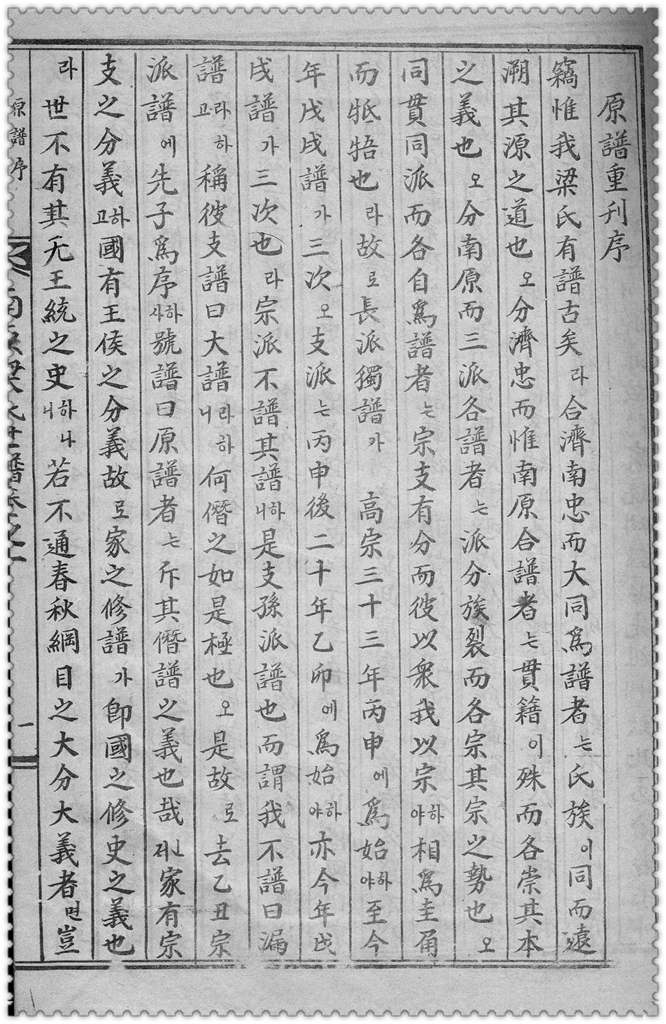 原譜重刊序
竊惟我梁氏有譜古矣라合濟南忠而大同爲譜者는氏族이同而遠
溯其源之道也오分濟忠而惟南原合譜者는貫籍이殊而各崇其本
之義也오分南原而三派各譜者는派分族裂而各宗其宗之勢也오
同貫同派而各自爲譜者는宗支有分而彼以衆我以宗하야相爲圭角
而牴牾也라故로長派獨譜가 高宗三十三年丙申에爲始하야至今
年戊戌譜가三次오支派는丙申後二十年乙卯에爲始하야亦今年戊
戌譜가三次也라宗派不譜其譜하니是支孫派譜也而謂我不譜曰漏
譜라고하稱彼支譜曰大譜라하니何僭之如是極也오是故로去乙丑宗
派譜에先子爲序하사號譜曰原譜者는斥其僭譜之義也哉ㄴ저家有宗
支之分義하고國有王侯之分義故로家之修譜가卽國之修史之義也
라世不有其无王統之史하니나若不通春秋綱目之大分大義者면豈
原譜序
南原梁氏世譜卷之一
一